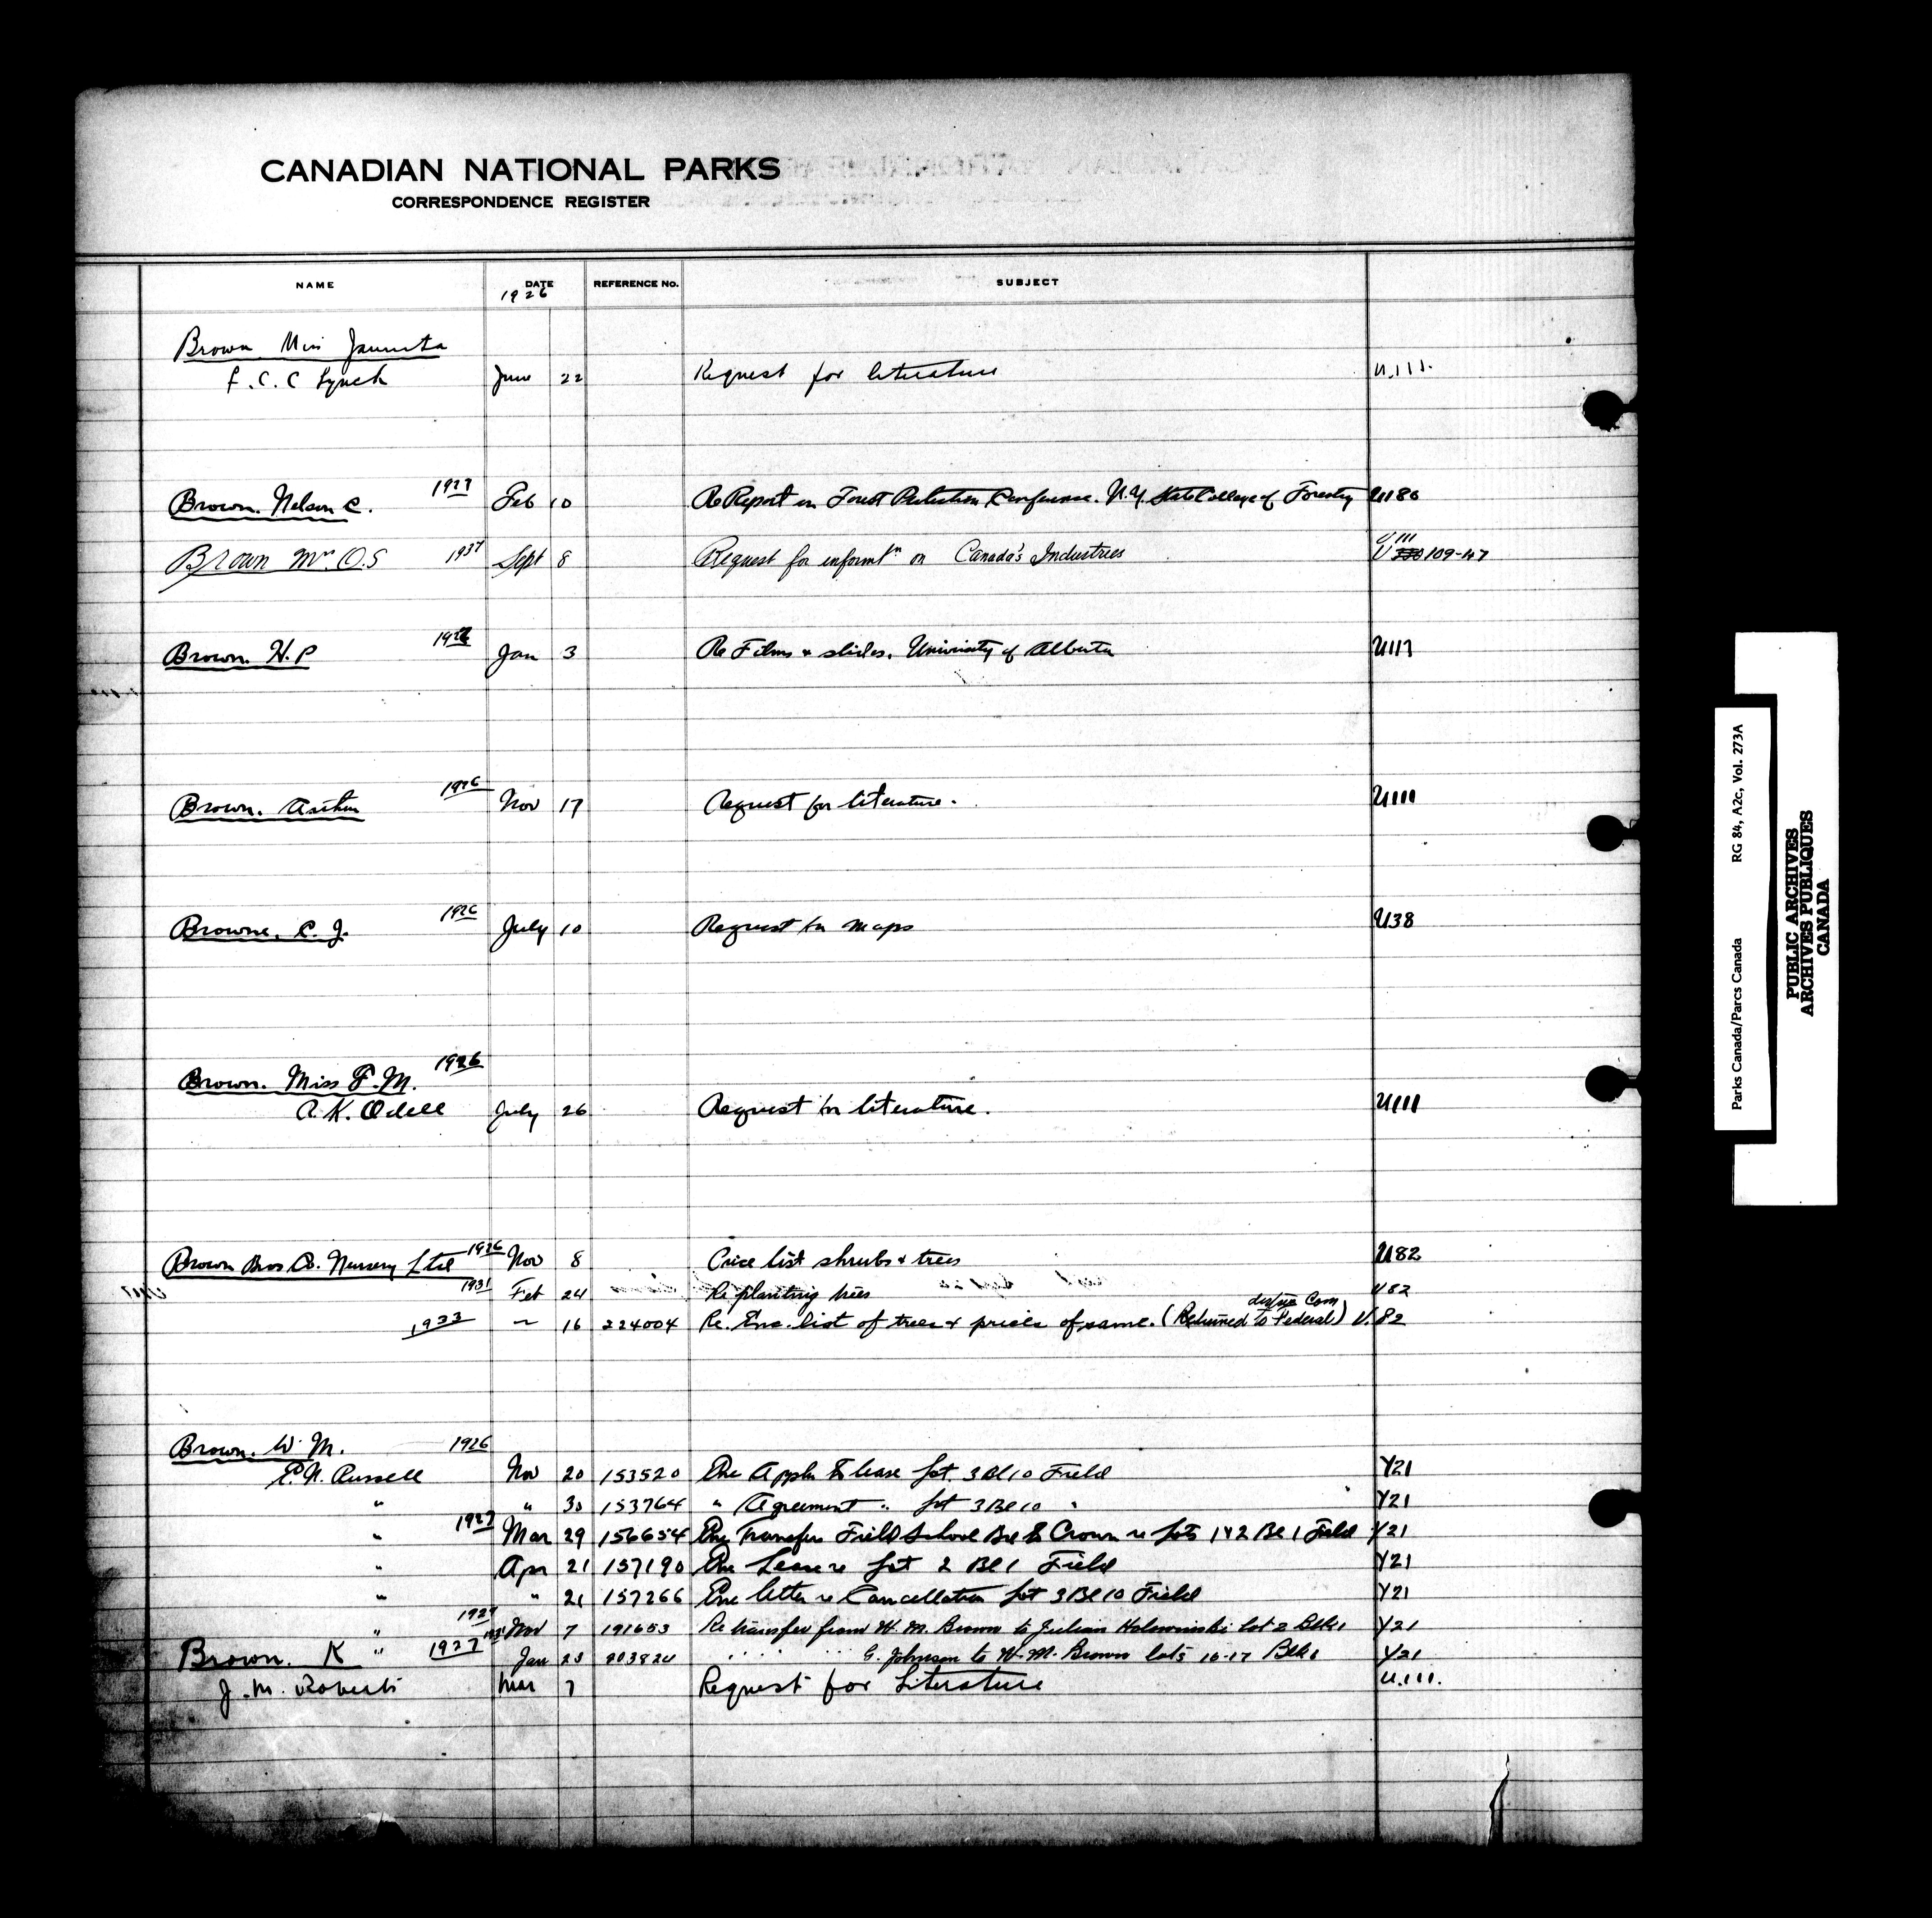 CANADIAN NATIONAL PARKS
CORRESPONDENCE REGISTER
NAME DATE REFERENCE No. SUBJECT
1926
Brown. Miss
F. C. C Lynch June 22 Request for literature U.111.
Brown. Nelson C. 1927 Feb 10 Re Report on Forest Protection Conference. N.Y. State College of Forestry U180
U111
Brown Mr. O.S 1937 Sept 8 Request for informtn on Canada's Industries U 109-47
Brown. H. P Jan 3 Re Films & slides. University of Alberta U117
Brown. Arthur 1926 Nov 17 Request for literature. U111
Browne, C. J. 1926 July 10 Request for maps U38
Brown. Miss F. M. 1926
R. K. Odell July 26 Request for literature. U111
Brown Bros Co. Nursery Ltd 1926 Nov 8 Price list shrubs & trees U82
1931 Feb 24 Re planting trees U82
1933 " 16 224004 Re. Enc. list of trees & prices of same. (Returned to Federal Com) U.82
Brown. W. M. 1926
P.N. Russell Nov 20 153520 Enc Appln to lease Lot. 3 Bl 10 Field Y21
" " 30 153764 " Agreement " Lot 3 Bl 10 " Y21
" 1927 Mar 29 156654 Enc Transfer Field School Bd to Crown re Lots 1 & 2 Bl 1 Field Y21
" Apr 21 157190 Enc Lease re Lot 2 Bl 1 Field Y21
" " 21 157266 Enc letter re Cancellation Lot 3 Bl 10 Field Y21
" 1929 Nov 7 191653 Re transfer from W. M. Brown to Julian lot 2 Blk 1 Y21
" Jan 23 203824 " " " G. Johnson to W. M. Brown lots 16-17 Blk 6 Y21
Brown. K 1927
J. M. Roberts Mar 7 Request for Literature U.111.
Parks Canada/Parcs Canada RG 84, A2c, Vol. 273A
PUBLIC ARCHIVES
ARCHIVES PUBLIQUES
CANADA